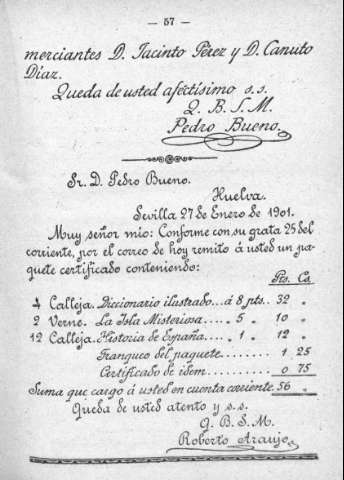 — 57 —
merciantes D. Jacinto Pérez y D. Canuto
Díaz.
Queda de usted aféctísimo s.s.
Q. B. S. M.
Pedro Bueno.
Sr. D. Pedro Bueno.
Huelva.
Sevilla 27 de Enero de 1901.
Muy señor mio: Conforme con su grata 25 del
corriente, por el correo de hoy remito á usted un pa-
quete certificado conteniendo:
Pts. Cs
4 Calleja. Diccionario ilustrado... á 8 pts. 32 "
2 Verne. La Isla Misteriosa..... " 5 " 10 "
12 Calleja. Historia de España.... " 1 " 12 "
Franqueo del paquete......... 1 25
Certificado de idem.......... 0 75
Suma que cargo á usted en cuenta corriente. 56 "
Queda de usted atento y s.s.
Q. B. S. M.
Roberto Araujo.